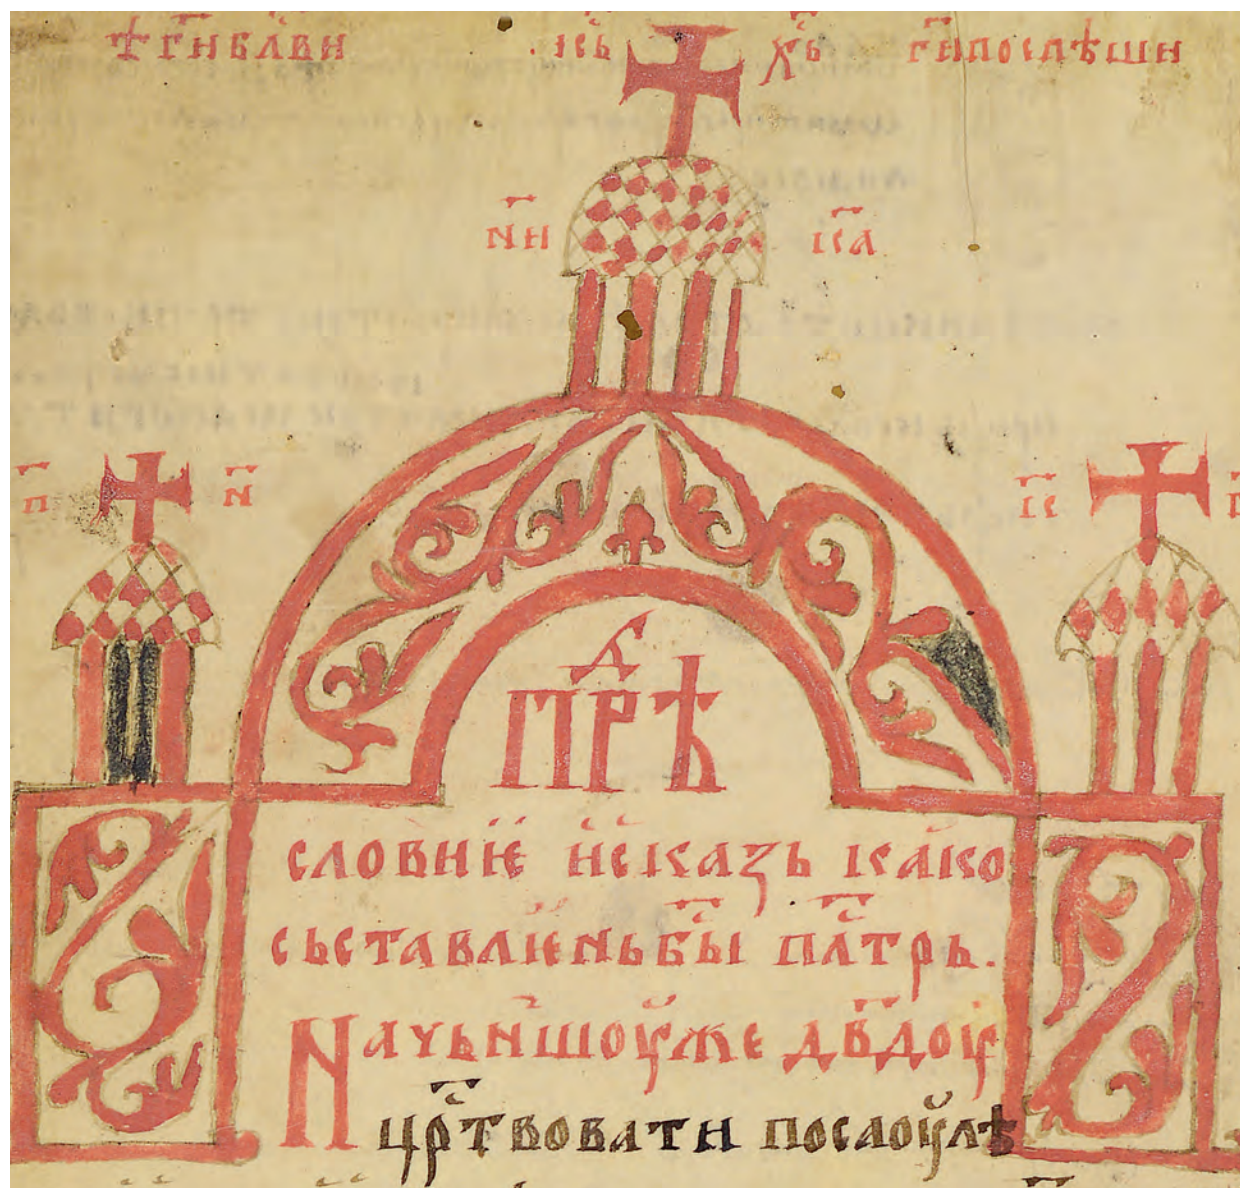 ✝ г҃и бл҃ви · і҃сь х҃ь г҃и поспѣши
н҃и к҃а
п҃ н҃ і҃с
прѣⷣ
словиѥ и сказь како
съставлѥнь бы҃ пл҃трь.
Начьншоу же дв҃доу
цр҃твовати по саоулѣ